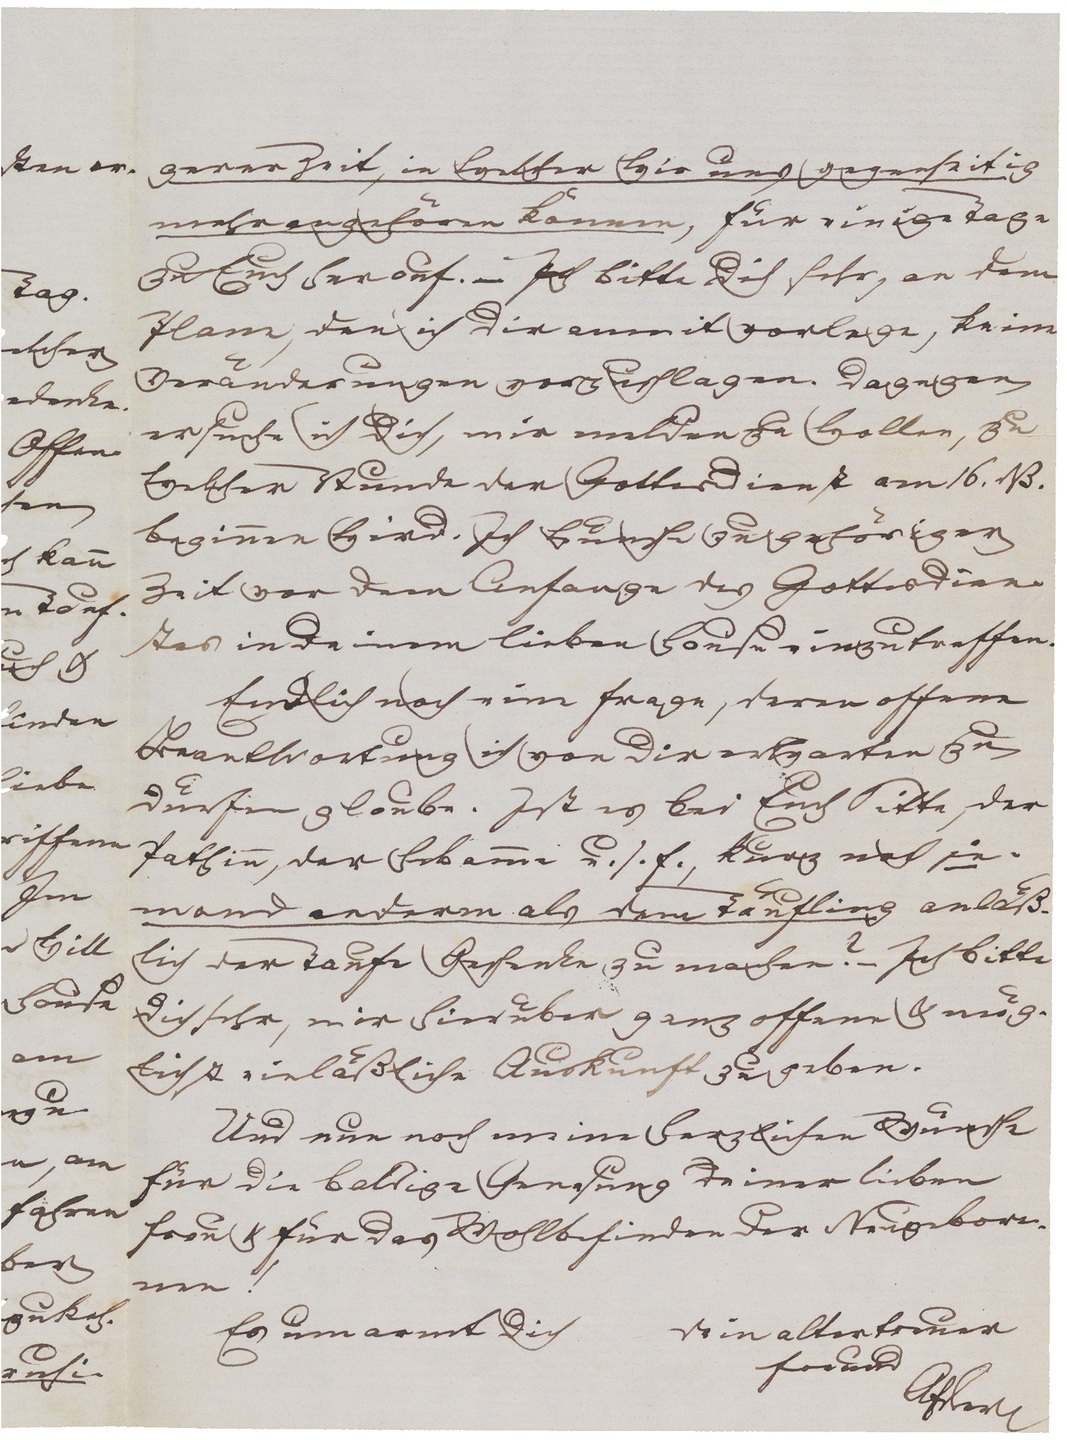 sten er-
Tag.
welcher
edenke.
Offen-
hen
ch kann
n Tauf-
uch &
finden
liebe
riffene
Im
will
Hause
am
n, am
fahren
ber
zukeh-
ruhi-
gerer Zeit, in welcher wir uns gegenseitig
mehr angehören können, für einige Tage
zu Euch herauf. – Ich bitte Dich sehr, an dem
Plane, den ich Dir anmit vorlege, keine
Veränderungen vorzuschlagen. Dagegen
ersuche ich Dich, mir melden zu wollen, zu
welcher Stunde der Gottesdienst am 16. ds.
beginnen wird. Ich wünsche zu gehöriger
Zeit vor dem Anfange des Gottesdien-
stes in Deinem lieben Hause einzutreffen.
Endlich noch eine Frage, deren offene
Beantwortung ich von Dir erwarten zu
dürfen glaube. Ist es bei Euch Sitte, der
Pathin, der Hebamme u. s. f., kurz noch je-
mand anderm als dem Täufling anläß-
lich der Taufe Geschenke zu machen? – Ich bitte
Dich sehr, mir hierüber ganz offene & mög-
lichst einläßliche Auskunft zu geben.
Und nun noch meine herzlichen Wünsche
für die baldige Genesung Deiner lieben
Frau & für das Wohlbefinden der Neugebore-
nen!
Es umarmt Dich Dein alter treuer
Freund
AEscher